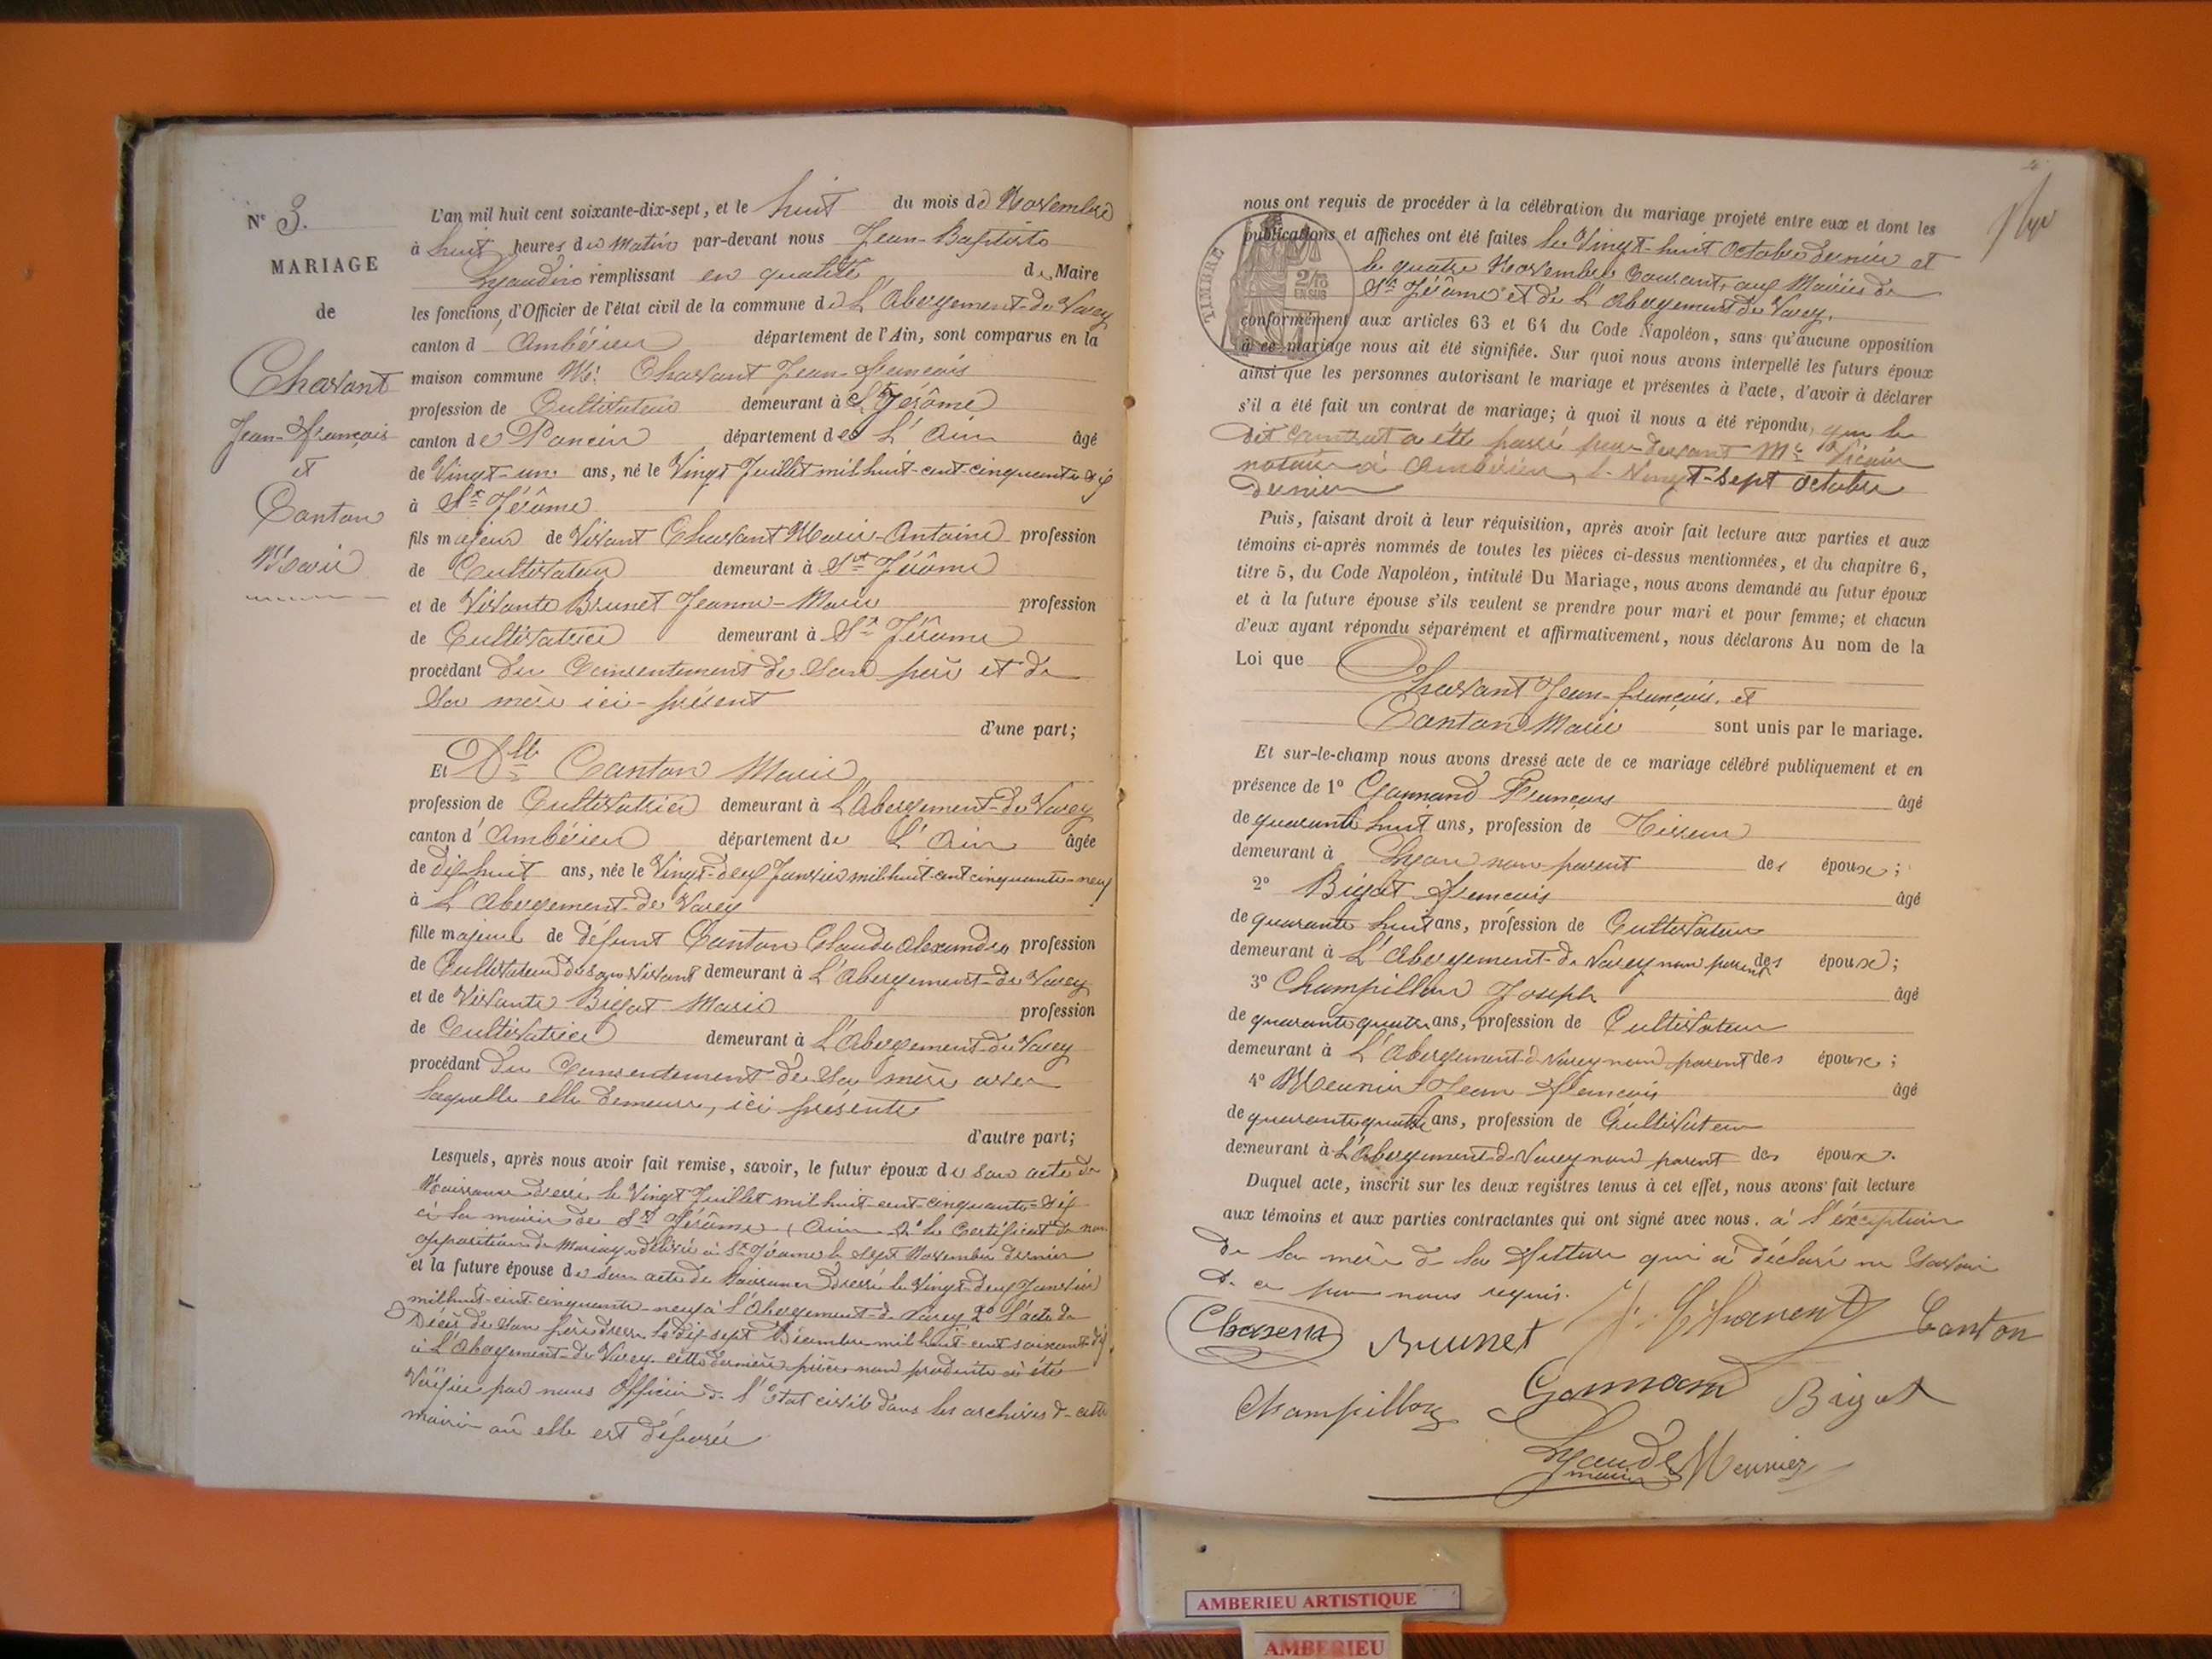 N° 3.
MARIAGE
de
Chavant
Jean-François
et
Canton
Marie
L'an mil huit cent soixante-dix-sept, et le huit du mois de Novembre
à huit heures du Matin par-devant nous Jean-Baptiste
Lyaudin remplissant en qualité de Maire
les fonctions d'Officier de l'état civil de la commune de L'Abergement-de-Varey
canton d'Ambérieu département de l'Ain, sont comparus en la
maison commune Mr. Chavant Jean-François
profession de Cultivateur demeurant à St Jérôme
canton de Poncin département de L'Ain âgé
de Vingt-un ans, né le Vingt Juillet mil huit-cent cinquante-six
à St Jérôme
fils majeur de Vivant Chavant Marie-Antoine profession
de Cultivateur demeurant à St Jérôme
et de Vivante Brunet Jeanne-Marie profession
de Cultivatrice demeurant à St Jérôme
procédant du Consentement de Son père et de
Sa mère ici-présent
d'une part;
Et Dlle Canton Marie
profession de Cultivatrice demeurant à L'Abergement-de-Varey
canton d'Ambérieu département de L'Ain âgée
de dix huit ans, née le Vingt-deux Janvier mil huit-cent cinquante-neuf
à L'Abergement-de-Varey
fille majeure de défunt Canton Claude Alexandre profession
de Cultivateur de son vivant demeurant à L'Abergement-de-Varey
et de Vivante Bigot Marie profession
de Cultivatrice demeurant à L'Abergement-de-Varey
procédant du Consentement de Sa mère avec
laquelle elle demeure, ici présente
d'autre part;
Lesquels, après nous avoir fait remise, savoir, le futur époux de son acte de
Naissance dressé le Vingt Juillet mil huit-cent-cinquante-six
à la mairie de St Jérôme (Ain 2° le Certificat de non
opposition de Mariage délivré à St Jérôme le Sept Novembre dernier
et la future épouse de son acte de Naissance dressé le Vingt-deux Janvier
mil huit-cent-cinquante-neuf à L'Abergement-de-Varey 2° l'acte de
Décès de Son père dressé le dix-sept Décembre mil huit-cent soixante-dix
à L'Abergement-de-Varey. cette dernière pièce non produite a été
Vérifiée par nous Officier de l'Etat civil dans les archives de cette
mairie où elle est déposée
nous ont requis de procéder à la célébration du mariage projeté entre eux et dont les
publications et affiches ont été faites le Vingt-huit Octobre dernier et
le quatre Novembre Courant, aux Mairies de
St Jérôme et de L'Abergement de Varey.
TIMBRE
2/10
EN SUS
conformément aux articles 63 et 64 du Code Napoléon, sans qu'aucune opposition
à ce mariage nous ait été signifiée. Sur quoi nous avons interpellé les futurs époux
ainsi que les personnes autorisant le mariage et présentes à l'acte, d'avoir à déclarer
s'il a été fait un contrat de mariage; à quoi il nous a été répondu, que le
dit Contrat a été passé par-devant Me
notaire à Ambérieu, le Vingt-sept Octobre
dernier
Puis, faisant droit à leur réquisition, après avoir fait lecture aux parties et aux
témoins ci-après nommés de toutes les pièces ci-dessus mentionnées, et du chapitre 6,
titre 5, du Code Napoléon, intitulé Du Mariage, nous avons demandé au futur époux
et à la future épouse s'ils veulent se prendre pour mari et pour femme; et chacun
d'eux ayant répondu séparément et affirmativement, nous déclarons Au nom de la
Loi que
Chavant Jean-françois. et
Canton Marie sont unis par le mariage.
Et sur-le-champ nous avons dressé acte de ce mariage célébré publiquement et en
présence de 1° Gormand François âgé
de quarante huit ans, profession de Tisseur
demeurant à Lyon non parent des époux;
2° Bigot François âgé
de quarante huit ans, profession de Cultivateur
demeurant à L'Abergement-de Varey non parent des époux;
3° Champillon Joseph âgé
de quarante quatre ans, profession de Cultivateur
demeurant à L'Abergement-de Varey non parent des époux;
4° Meunier Jean François âgé
de quarante quatre ans, profession de Cultivateur
demeurant à L'Abergement-de Varey non parent des époux.
Duquel acte, inscrit sur les deux registres tenus à cet effet, nous avons fait lecture
aux témoins et aux parties contractantes qui ont signé avec nous. à l'éxception
de la mère de la future qui a déclaré ne Savoir
de ce par nous requis.
Chavent Brunet J. Chavent Canton
Champillon Gormand Bigot
Lyaudin Meunier
maire
AMBERIEU ARTISTIQUE
AMBERIEU